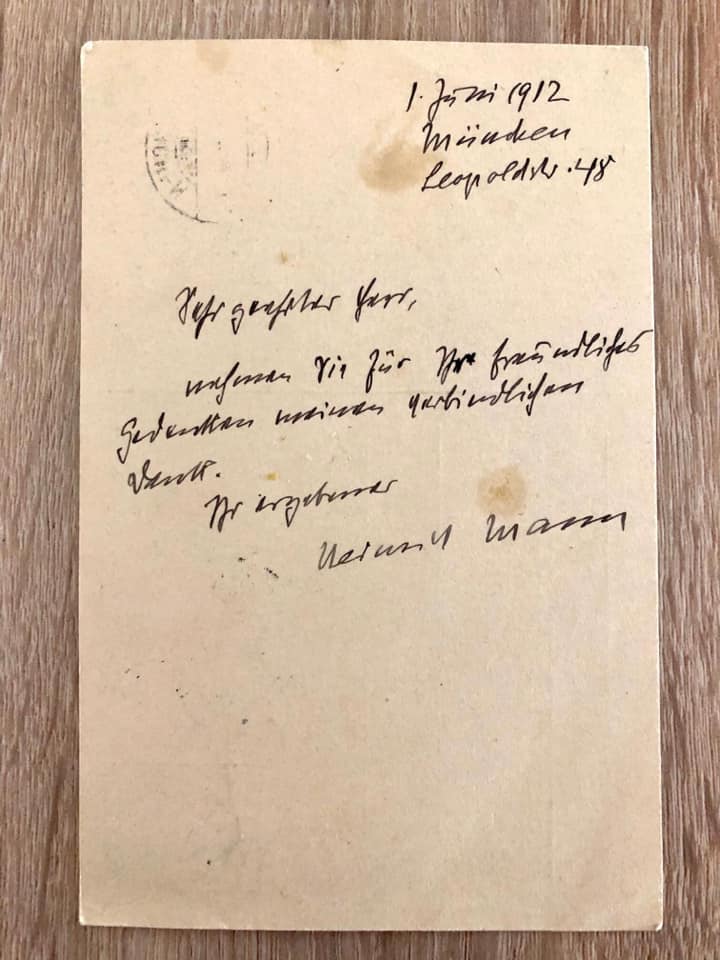 1. Juni 1912
München
Leopoldstr. 48
Sehr geehrter Herr,
nehmen Sie für Ihr freundliches
Gedenken meinen verbindlichen
Dank.
Ihr ergebener
Heinrich Mann